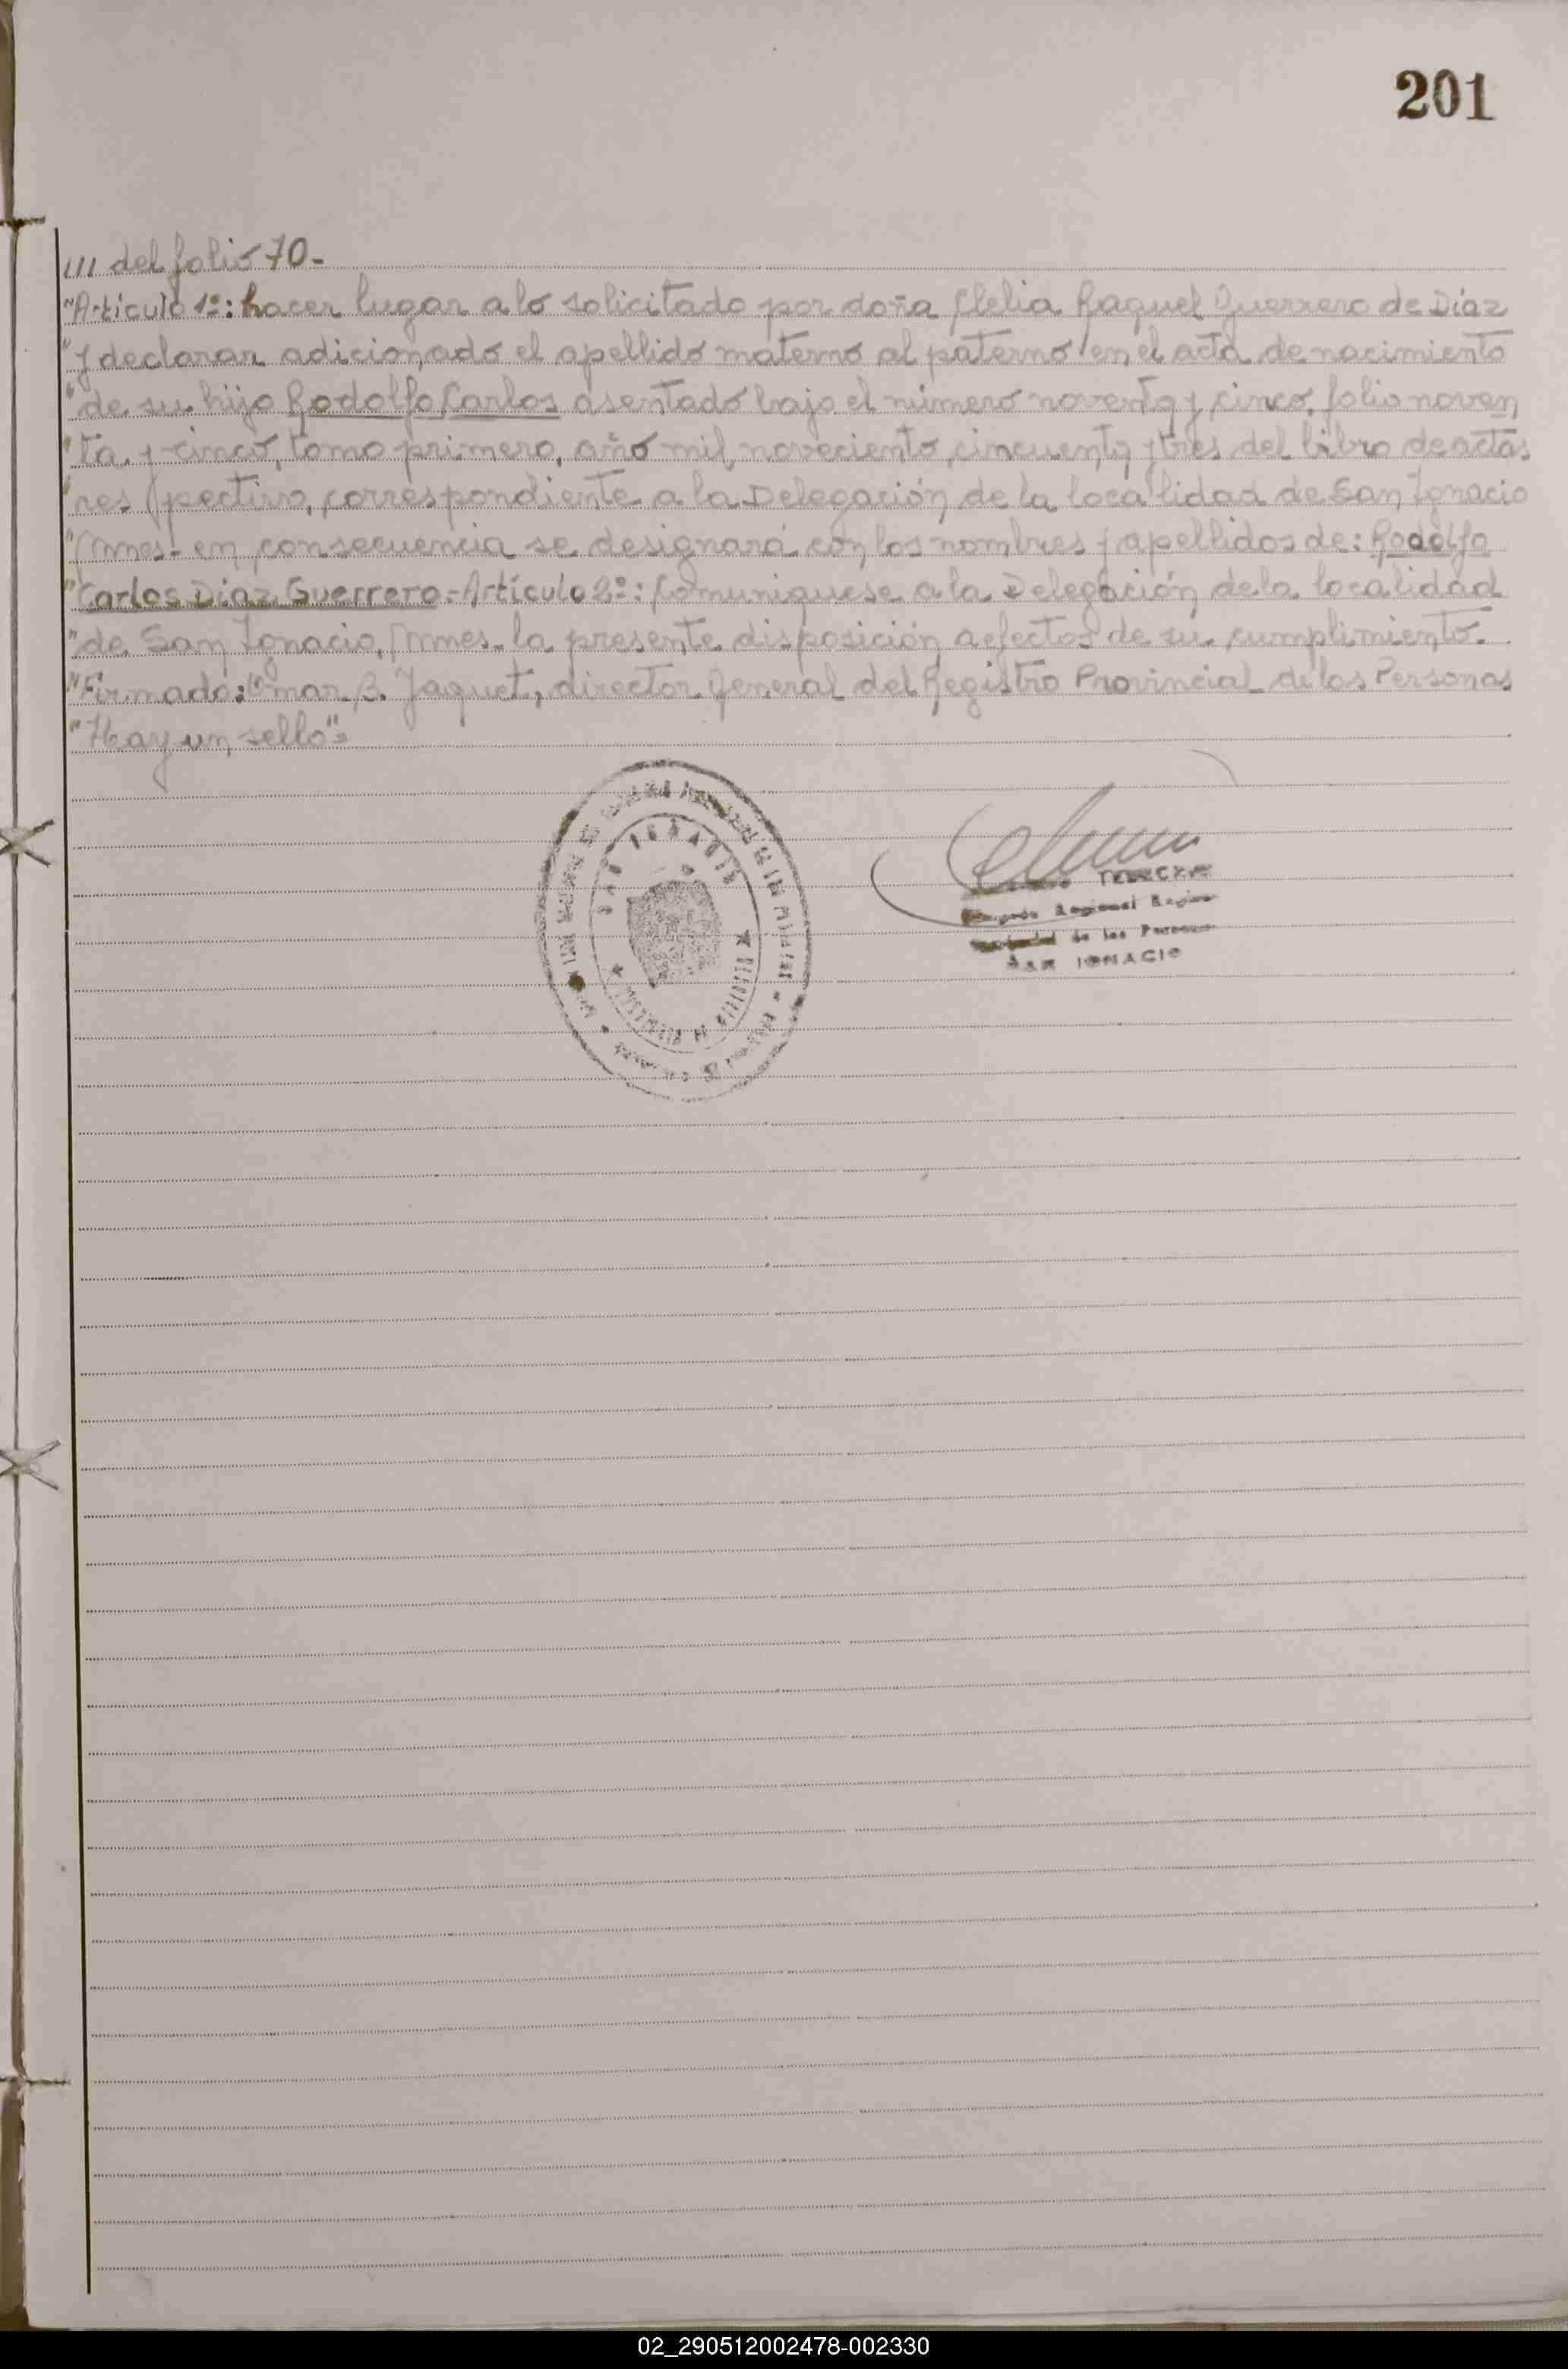 201
/// del folio 70.-
"Artículo 1º: hacer lugar a lo solicitado por doña Clelia Raquel Guerrero de Díaz
"y declarar adicionado el apellido materno al paterno en el acta de nacimiento
"de su hijo Rodolfo Carlos asentado bajo el número noventa y cinco, folio noven
"ta y cinco, tomo primero, año mil noveciento cincuenta y tres del libro de actas
"res pectivo, correspondiente a la Delegación de la localidad de San Ignacio
"Mnes- en consecuencia se designará con los nombres y apellidos de: Rodolfo
"Carlos Díaz Guerrero.- Artículo 2º: Comuniquese a la Delegación de la localidad
"de San Ignacio, Mnes. la presente disposición a efectos de su cumplimiento.-
"Firmado: Omar B. Jaquet, director General del Registro Provincial de las Personas
"Hay un sello"=
SAN IGNACIO
Regional
de las Personas
SAN IGNACIO
02_290512002478-002330